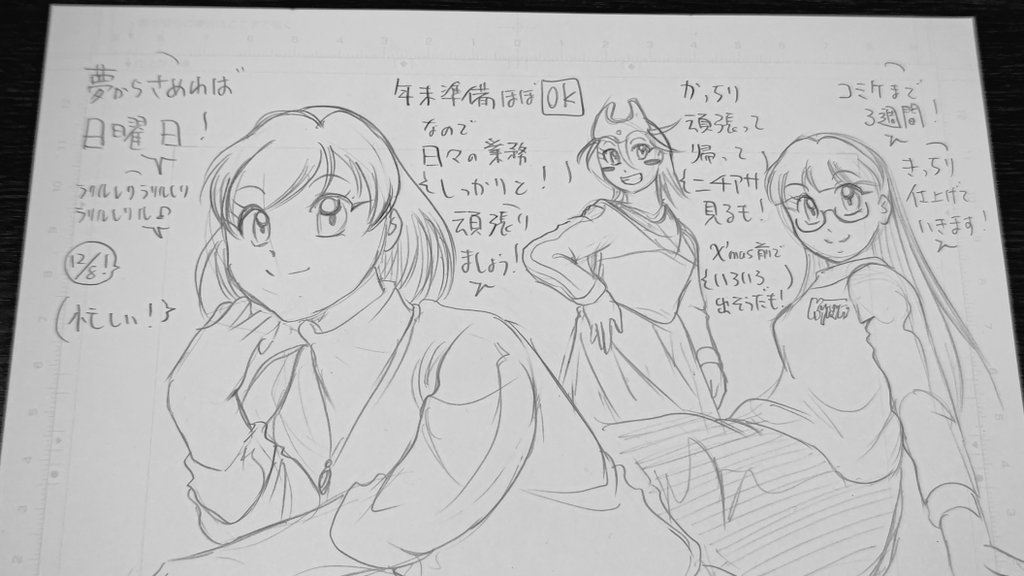 夢からさめれば
日曜日!
ラリルレリラリルレリ
ラリルレリル♪
12/8!
(忙しい!)
年末準備ほぼOK
なので
日々の業務
しっかりと!
頑張り
ましょう!
がっちり
頑張って
帰って
ニチアサ
見るも!
X'mas前で
いろいろ
出そうだも!
コミケまで
3週間!
きっちり
仕上げて
いきます!